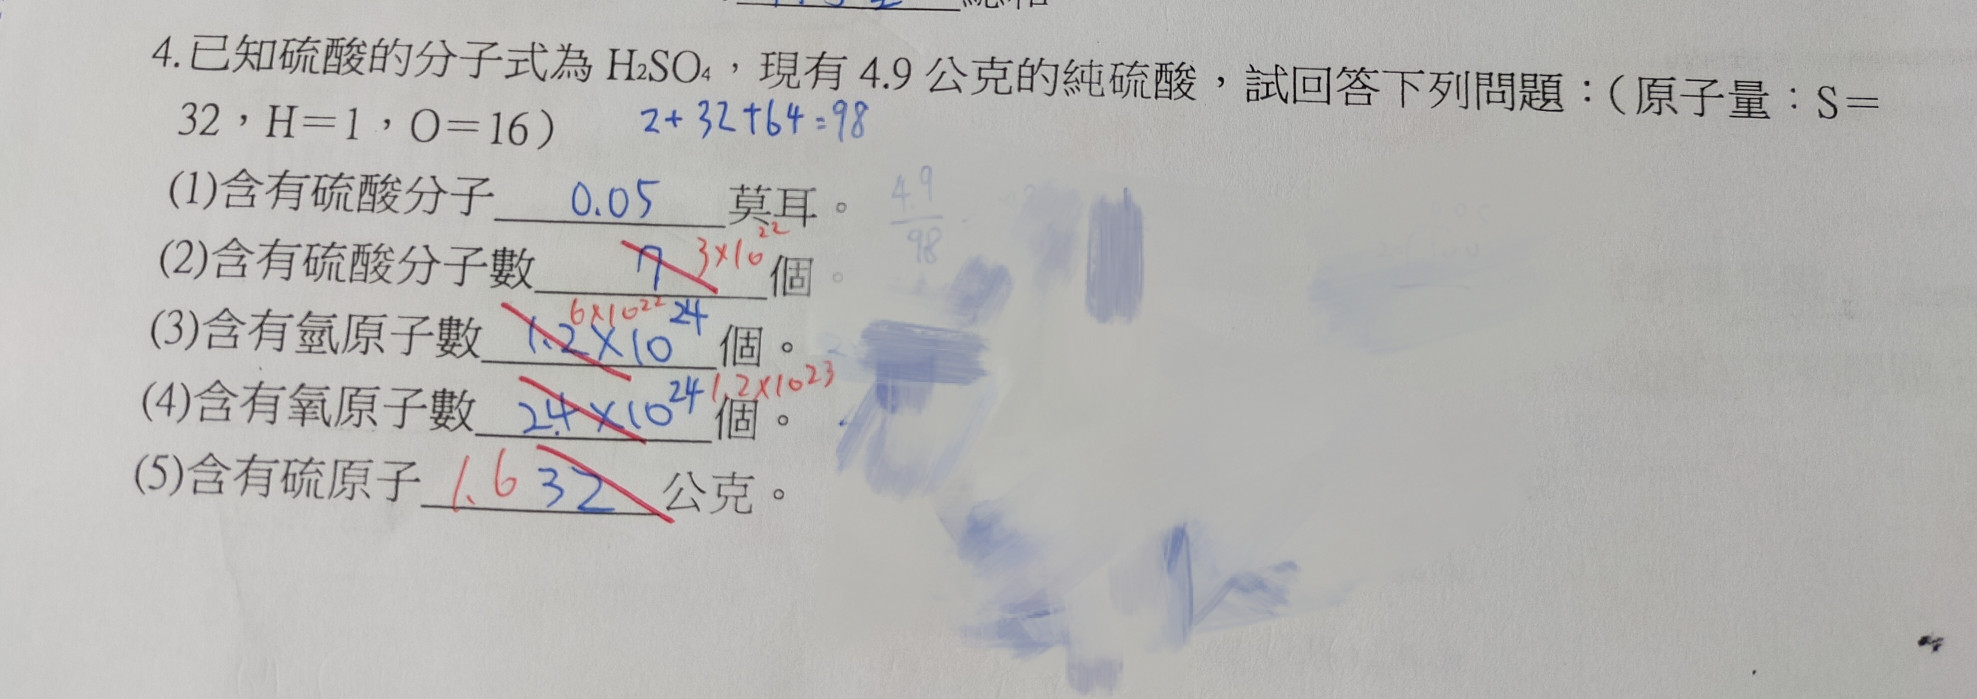 4.已知硫酸的分子式為 H₂SO₄，現有 4.9 公克的純硫酸，試回答下列問題：（原子量：S＝
32，H＝1，O＝16） 2+32+64=98
(1)含有硫酸分子 0.05 莫耳。 4.9/98
(2)含有硫酸分子數 7 3×10²² 個。
(3)含有氫原子數 1.2×10²⁴ 6×10²² 個。
(4)含有氧原子數 2.4×10²⁴ 1.2×10²³ 個。
(5)含有硫原子 1.6 32 公克。